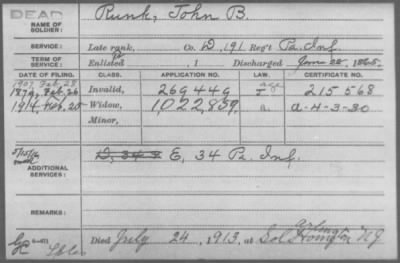 DEAD
NAME OF SOLDIER: Runk, John B.
SERVICE: Late rank, Co. D, 191 Reg't Pa. Inf.
TERM OF SERVICE: Enlisted , 1 Discharged June 28, 1865.
DATE OF FILING. CLASS. APPLICATION NO. LAW. CERTIFICATE NO.
1907, Feb. 28 age
1879, Feb. 26 Invalid, 269449 I 215568
1914, Feb. 25 Widow, 1,022,839 a. a-4-3-30
Minor,
ADDITIONAL SERVICES: D, 34 E, 34 Pa. Inf.
REMARKS:
Died July 24, 1913, at Sol Home Arlington NJ